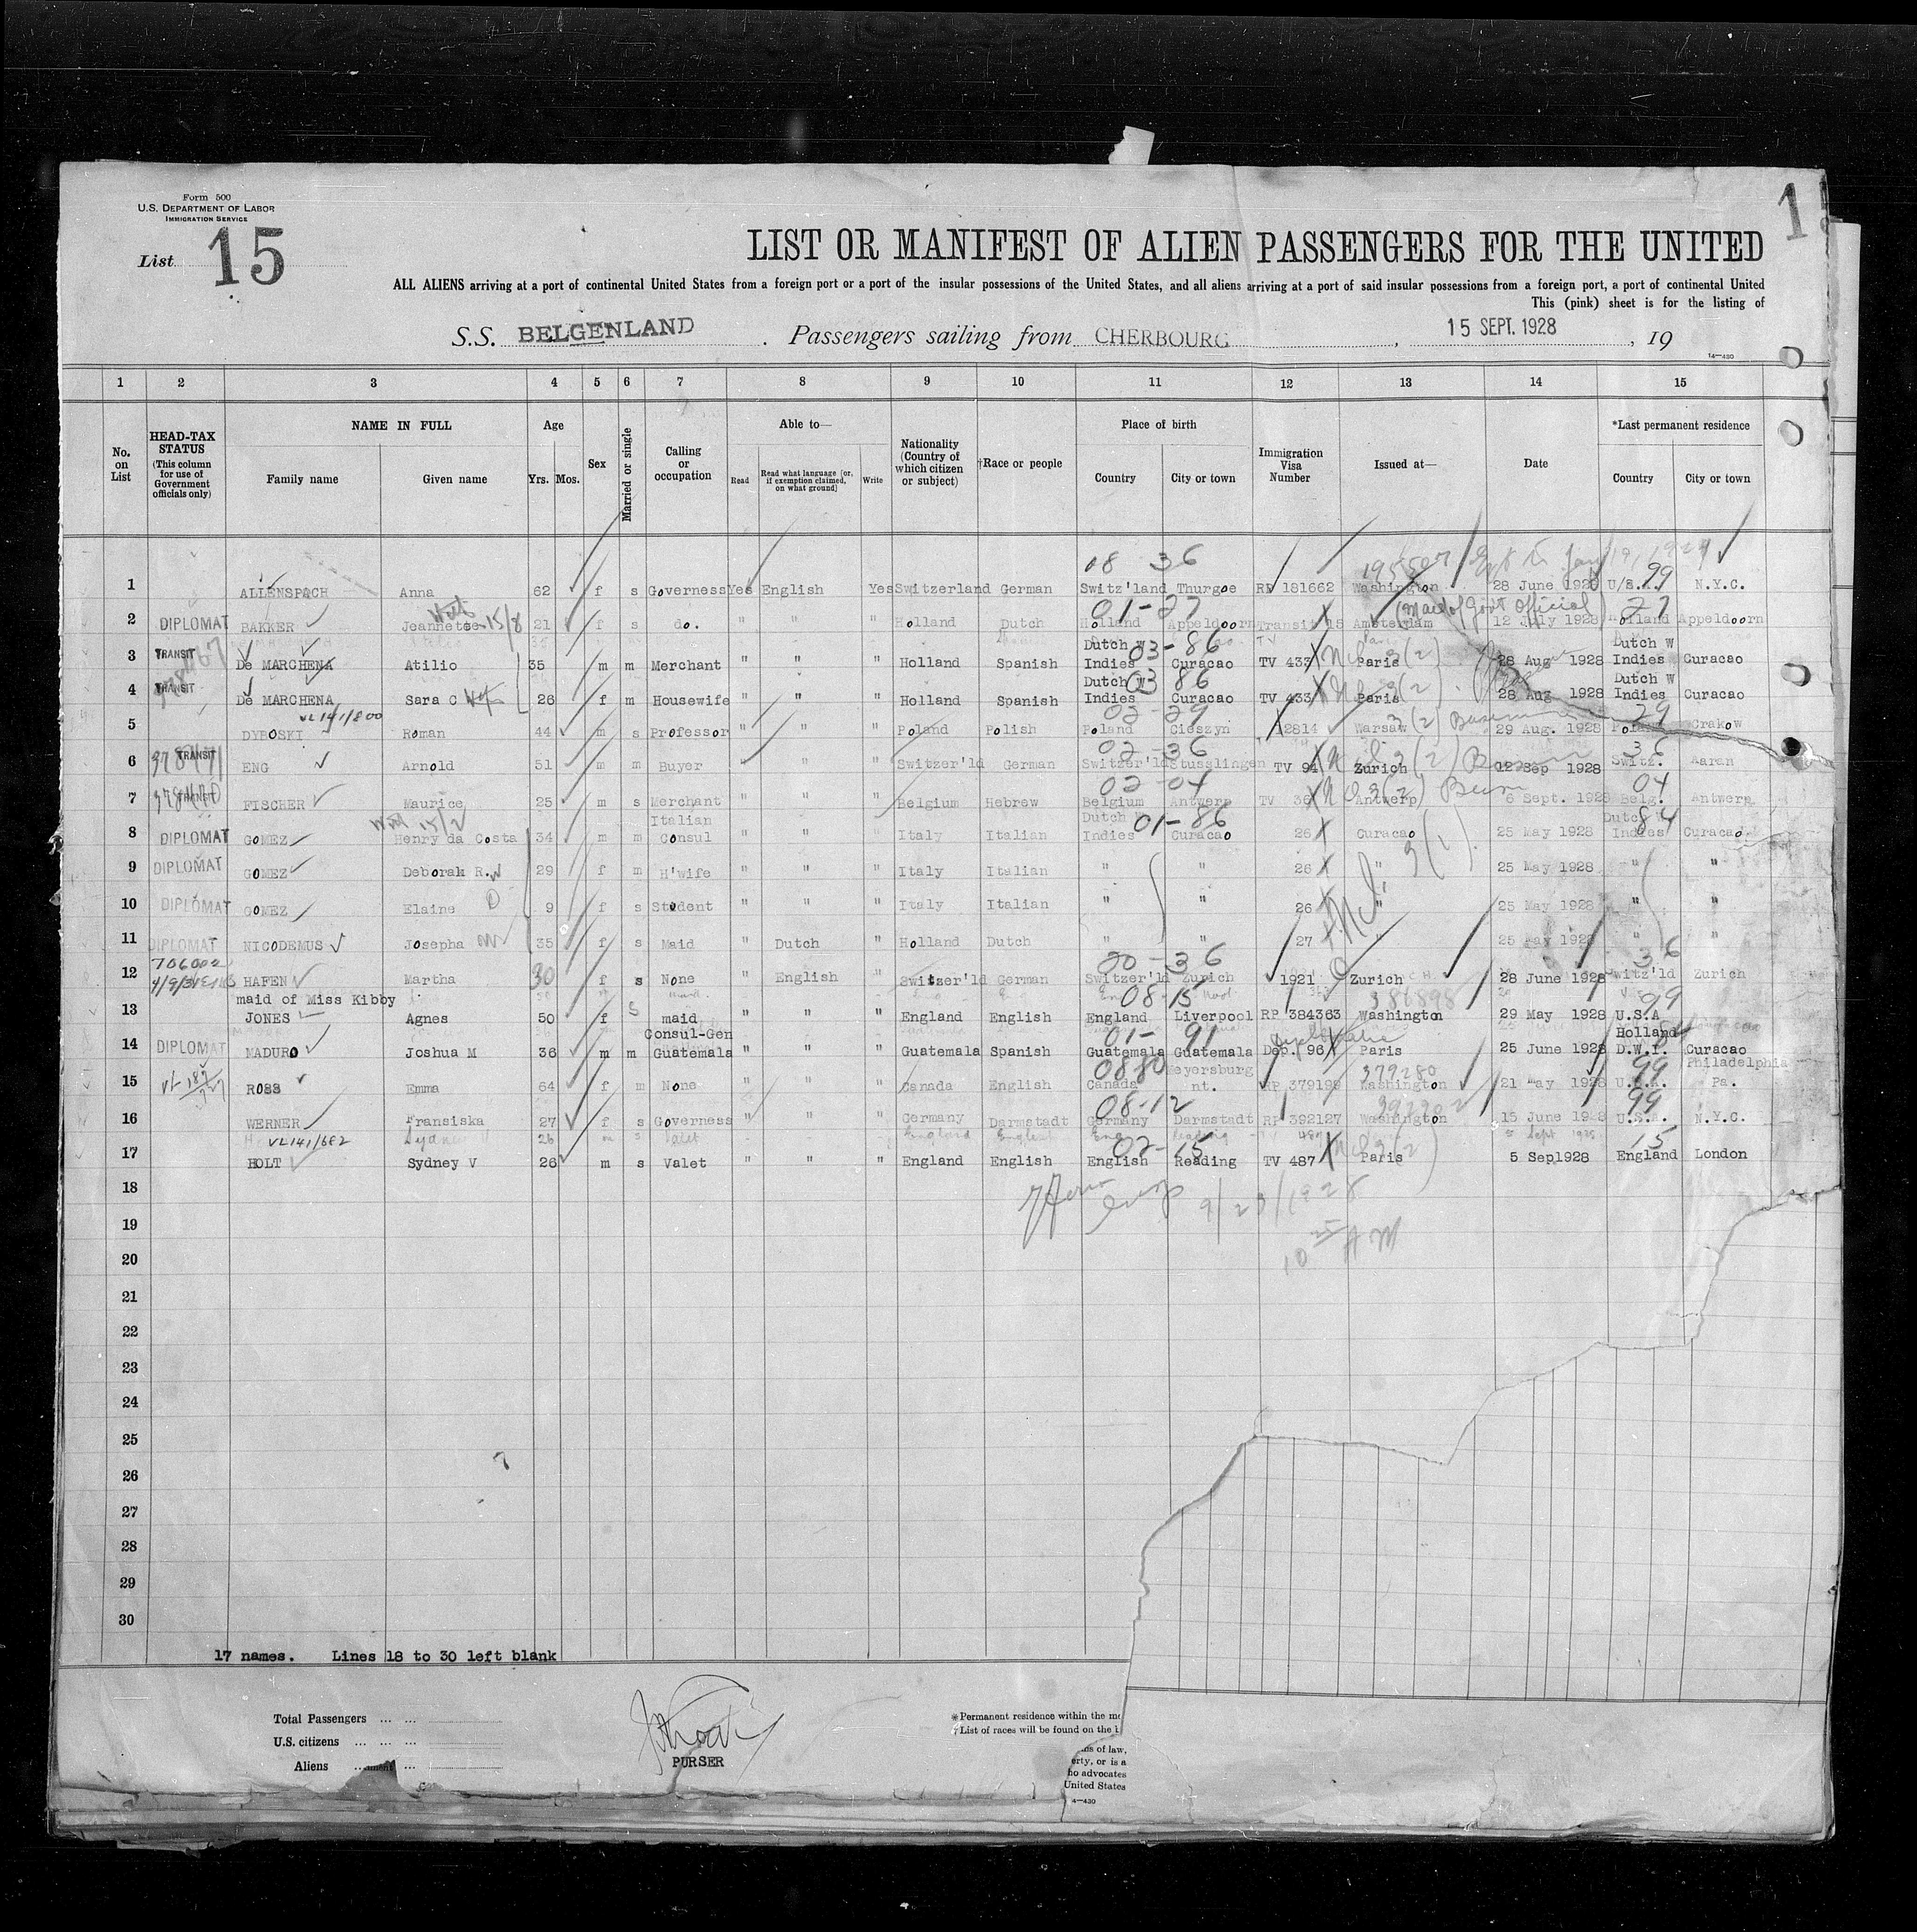 Form 500
U.S. DEPARTMENT OF LABOR
IMMIGRATION SERVICE
List 15
LIST OR MANIFEST OF ALIEN PASSENGERS FOR THE UNITED
ALL ALIENS arriving at a port of continental United States from a foreign port or a port of the insular possessions of the United States, and all aliens arriving at a port of said insular possessions from a foreign port, a port of continental United
This (pink) sheet is for the listing of
S.S. BELGENLAND . Passengers sailing from CHERBOURG , 15 SEPT. 1928 , 19
14—430
1 2 3 4 5 6 7 8 9 10 11 12 13 14 15
No. on List
HEAD-TAX STATUS (This column for use of Government officials only)
NAME IN FULL Family name Given name
Age Yrs. Mos.
Sex
Married or single
Calling or occupation
Able to— Read Read what language [or, if exemption claimed, on what ground] Write
Nationality (Country of which citizen or subject)
†Race or people
Place of birth Country City or town
Immigration Visa Number
Issued at—
Date
*Last permanent residence Country City or town
08 36
1 ALLENSPACH Anna 62 f s Governess Yes English Yes Switzerland German Switz'land Thurgoe RP 181662 Washington 28 June 1928 U.S.A. 99 N.Y.C.
01-27 (Maid of Govt Official) 27
2 DIPLOMAT BAKKER Jeannette 15/8 21 f s do. " " " Holland Dutch Holland Appeldoorn Transit 15 Amsterdam 12 July 1928 Holland Appeldoorn
3 TRANSIT De MARCHENA Atilio 35 m m Merchant " " " Holland Spanish Dutch W Indies 03-86 Curacao TV 433 Paris 28 Aug 1928 Dutch W Indies Curacao
4 TRANSIT De MARCHENA Sara C 26 f m Housewife " " " Holland Spanish Dutch W Indies 03 86 Curacao TV 433 Paris 28 Aug 1928 Dutch W Indies Curacao
VL 141/800 02-29 29
5 DYBOSKI Roman 44 m s Professor " " " Poland Polish Poland Cieszyn 12814 Warsaw 29 Aug. 1928 Poland Crakow
02-36 36
6 TRANSIT ENG Arnold 51 m m Buyer " " " Switzer'ld German Switzer'ld Stusslingen TV 94 Zurich 12 Sep 1928 Switz. Aaran
02-04 04
7 TRANSIT FISCHER Maurice 25 m s Merchant " " " Belgium Hebrew Belgium Antwerp TV 36 Antwerp 6 Sept. 1928 Belg. Antwerp
8 DIPLOMAT GOMEZ Henry da Costa 34 m m Italian Consul " " " Italy Italian Dutch Indies 01-86 Curacao 26 Curacao 25 May 1928 Dutch Indies 84 Curacao
9 DIPLOMAT GOMEZ Deborah R. 29 f m H'wife " " " Italy Italian " " 26 " 25 May 1928 " "
10 DIPLOMAT GOMEZ Elaine 9 f s Student " " " Italy Italian " " 26 " 25 May 1928 " "
11 DIPLOMAT NICODEMUS Josepha 35 f s Maid " Dutch " Holland Dutch " " 27 " 25 May 1928 " "
706002 20-36 36
12 HAFEN Martha 30 f s None " English " Switzer'ld German Switzer'ld Zurich 1921 Zurich 28 June 1928 Switz'ld Zurich
maid of Miss Kibby 08-15 386898 99
13 JONES Agnes 50 f s maid " " " England English England Liverpool RP 384363 Washington 29 May 1928 U.S.A
14 DIPLOMAT MADURO Joshua M 36 m m Consul-Gen Guatemala " " " Guatemala Spanish 01-91 Guatemala Guatemala Diplomatic Dep. 96 Paris 25 June 1928 Holland D.W.I. Curacao
0880 379280 99
15 ROSS Emma 64 f m None " " " Canada English Canada Meyersburg nt. RP 379199 Washington 21 May 1928 U.S.A. Philadelphia Pa.
08-12 99
16 WERNER Fransiska 27 f s Governess " " " Germany Darmstadt Germany Darmstadt RP 392127 Washington 15 June 1928 U.S.A. N.Y.C.
VL141/682 02-15 15
17 HOLT Sydney V 26 m s Valet " " " England English English Reading TV 487 Paris 5 Sep1928 England London
18 9/23/1928
19 10 25 AM
20
21
22
23
24
25
26
27
28
29
30
17 names. Lines 18 to 30 left blank
Total Passengers
U.S. citizens
Aliens
PURSER
*Permanent residence within the
†List of races will be found on the
of law,
erty, or is a
ho advocates
United States
4—430